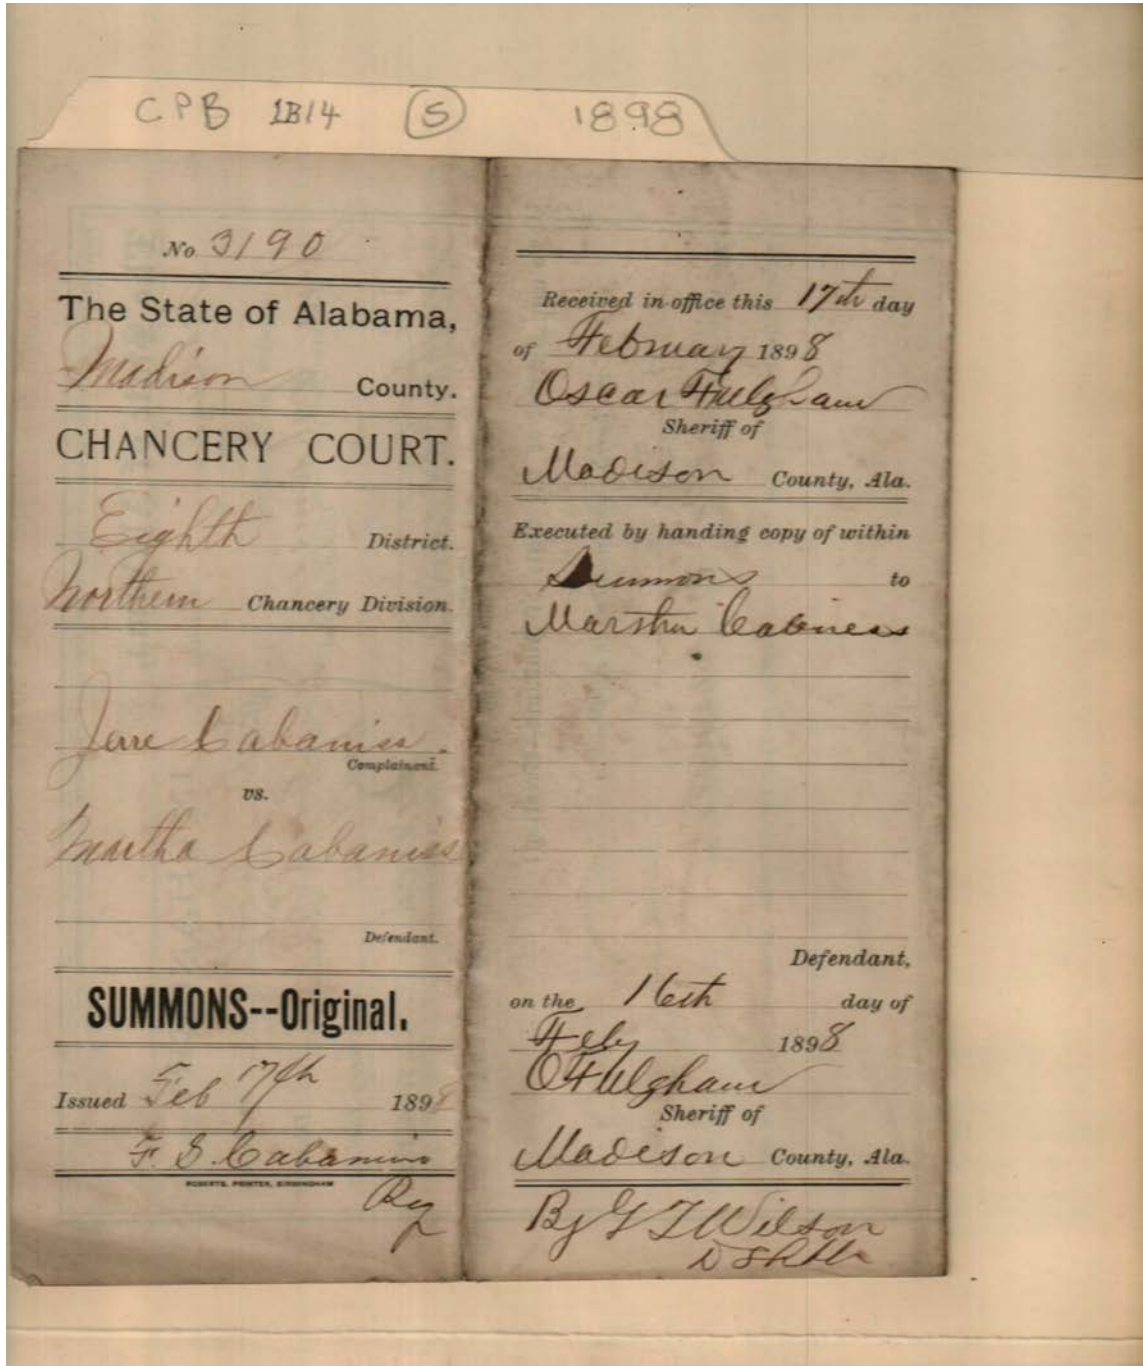 CPB 1B14 (5) 1898
No 3190
The State of Alabama,
Madison County.
CHANCERY COURT.
Eighth District.
Northern Chancery Division.
Jere Cabaniss.
Complainant.
vs.
Martha Cabaniss
Defendant.
SUMMONS--Original.
Issued Feb 17th 1898
F. S. Cabaniss
ROBERTS, PRINTER, BIRMINGHAM
Reg
Received in office this 17th day
of February 1898
Oscar Fulgham
Sheriff of
Madison County, Ala.
Executed by handing copy of within
Summons to
Martha Cabiness
Defendant,
on the 16th day of
Feby 1898
O Fulgham
Sheriff of
Madison County, Ala.
By G T Wilson